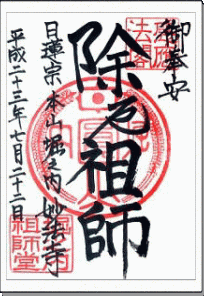 御奉安
除厄祖師
日蓮宗本山堀之内妙法寺
平成二十三年七月二十二日
祖師堂